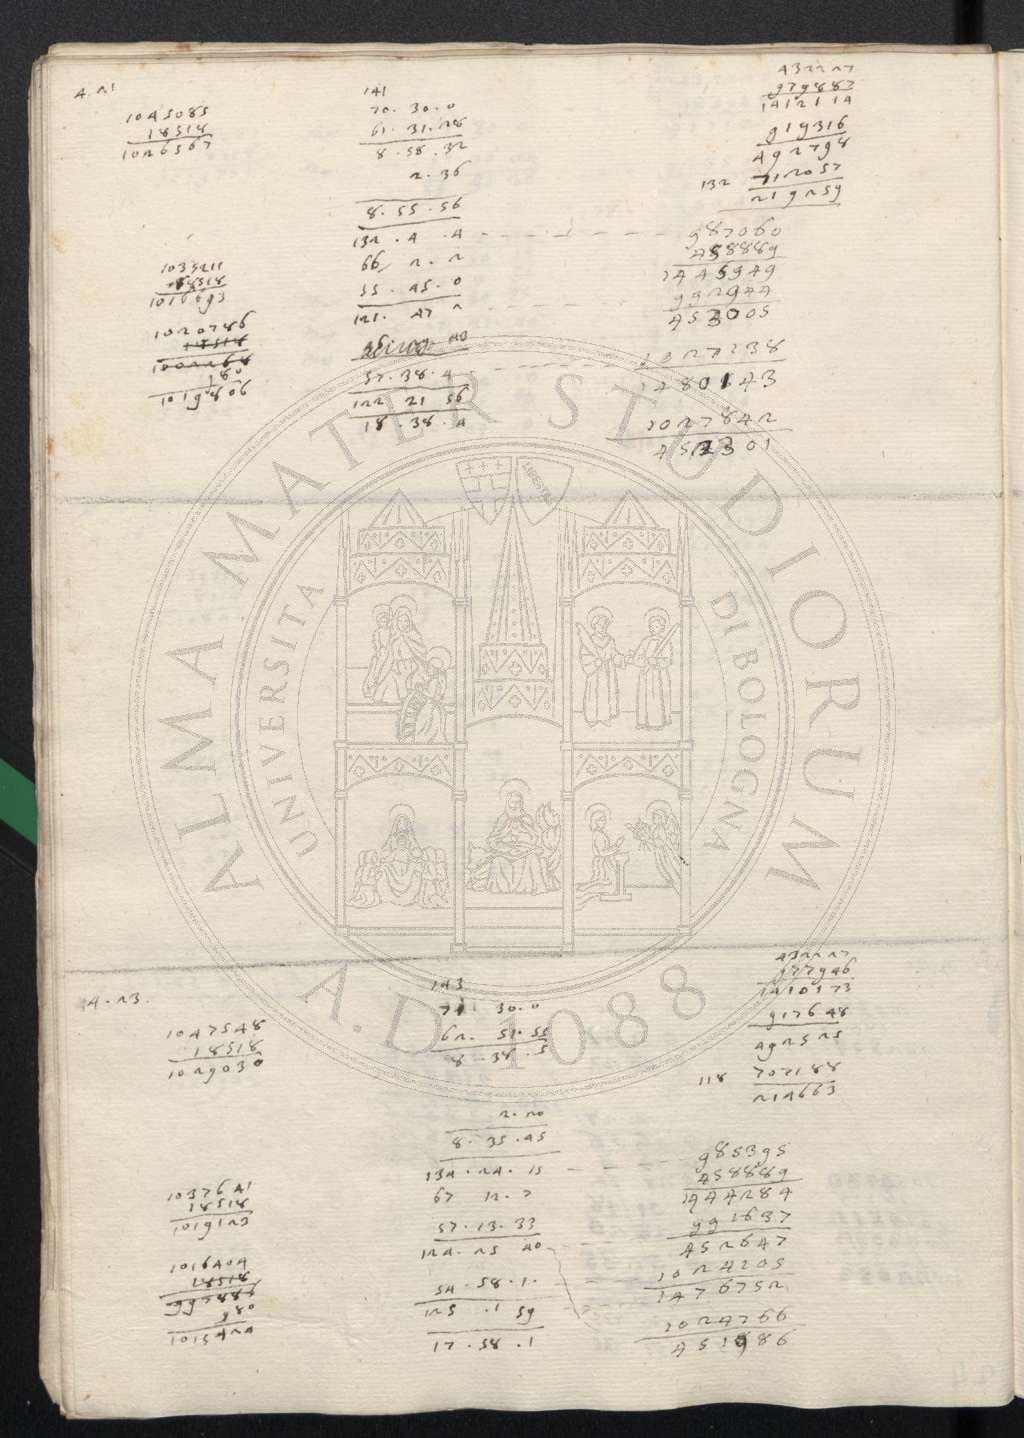 4.21
1045085
18518
1026567
1035211
18518
1016693
1020786
18518
1002268
980
1019806
141
70. 30. 0
61. 31. 28
8. 58. 32
2. 36
8. 55. 56
132. 4. 4
66. 2. 2
55. 45. 0
121. 47 2
57. 38. 4
122 21 56
18. 38. 4
432227
979887
1412114
919316
492798
132 712057
219259
987060
458889
1445949
992944
453005
1027138
1480143
1027842
452301
4. 23.
1047548
18518
1029030
1037641
18518
1019123
1016404
18518
997886
980
1015424
143
71 30. 0
62. 51. 55
8. 38. 5
2. 20
8. 35. 45
134. 24. 15
67 12. 7
57. 13. 33
124. 25 40
54. 58. 1.
125. 1 59
17. 58. 1
432227
977946
1410173
917648
492525
118 707188
214663
985395
458889
1444284
991637
452647
1024105
1476752
1024766
451986
ALMA MATER STUDIORUM
UNIVERSITA DI BOLOGNA
LIBERTAS
A.D. 1088